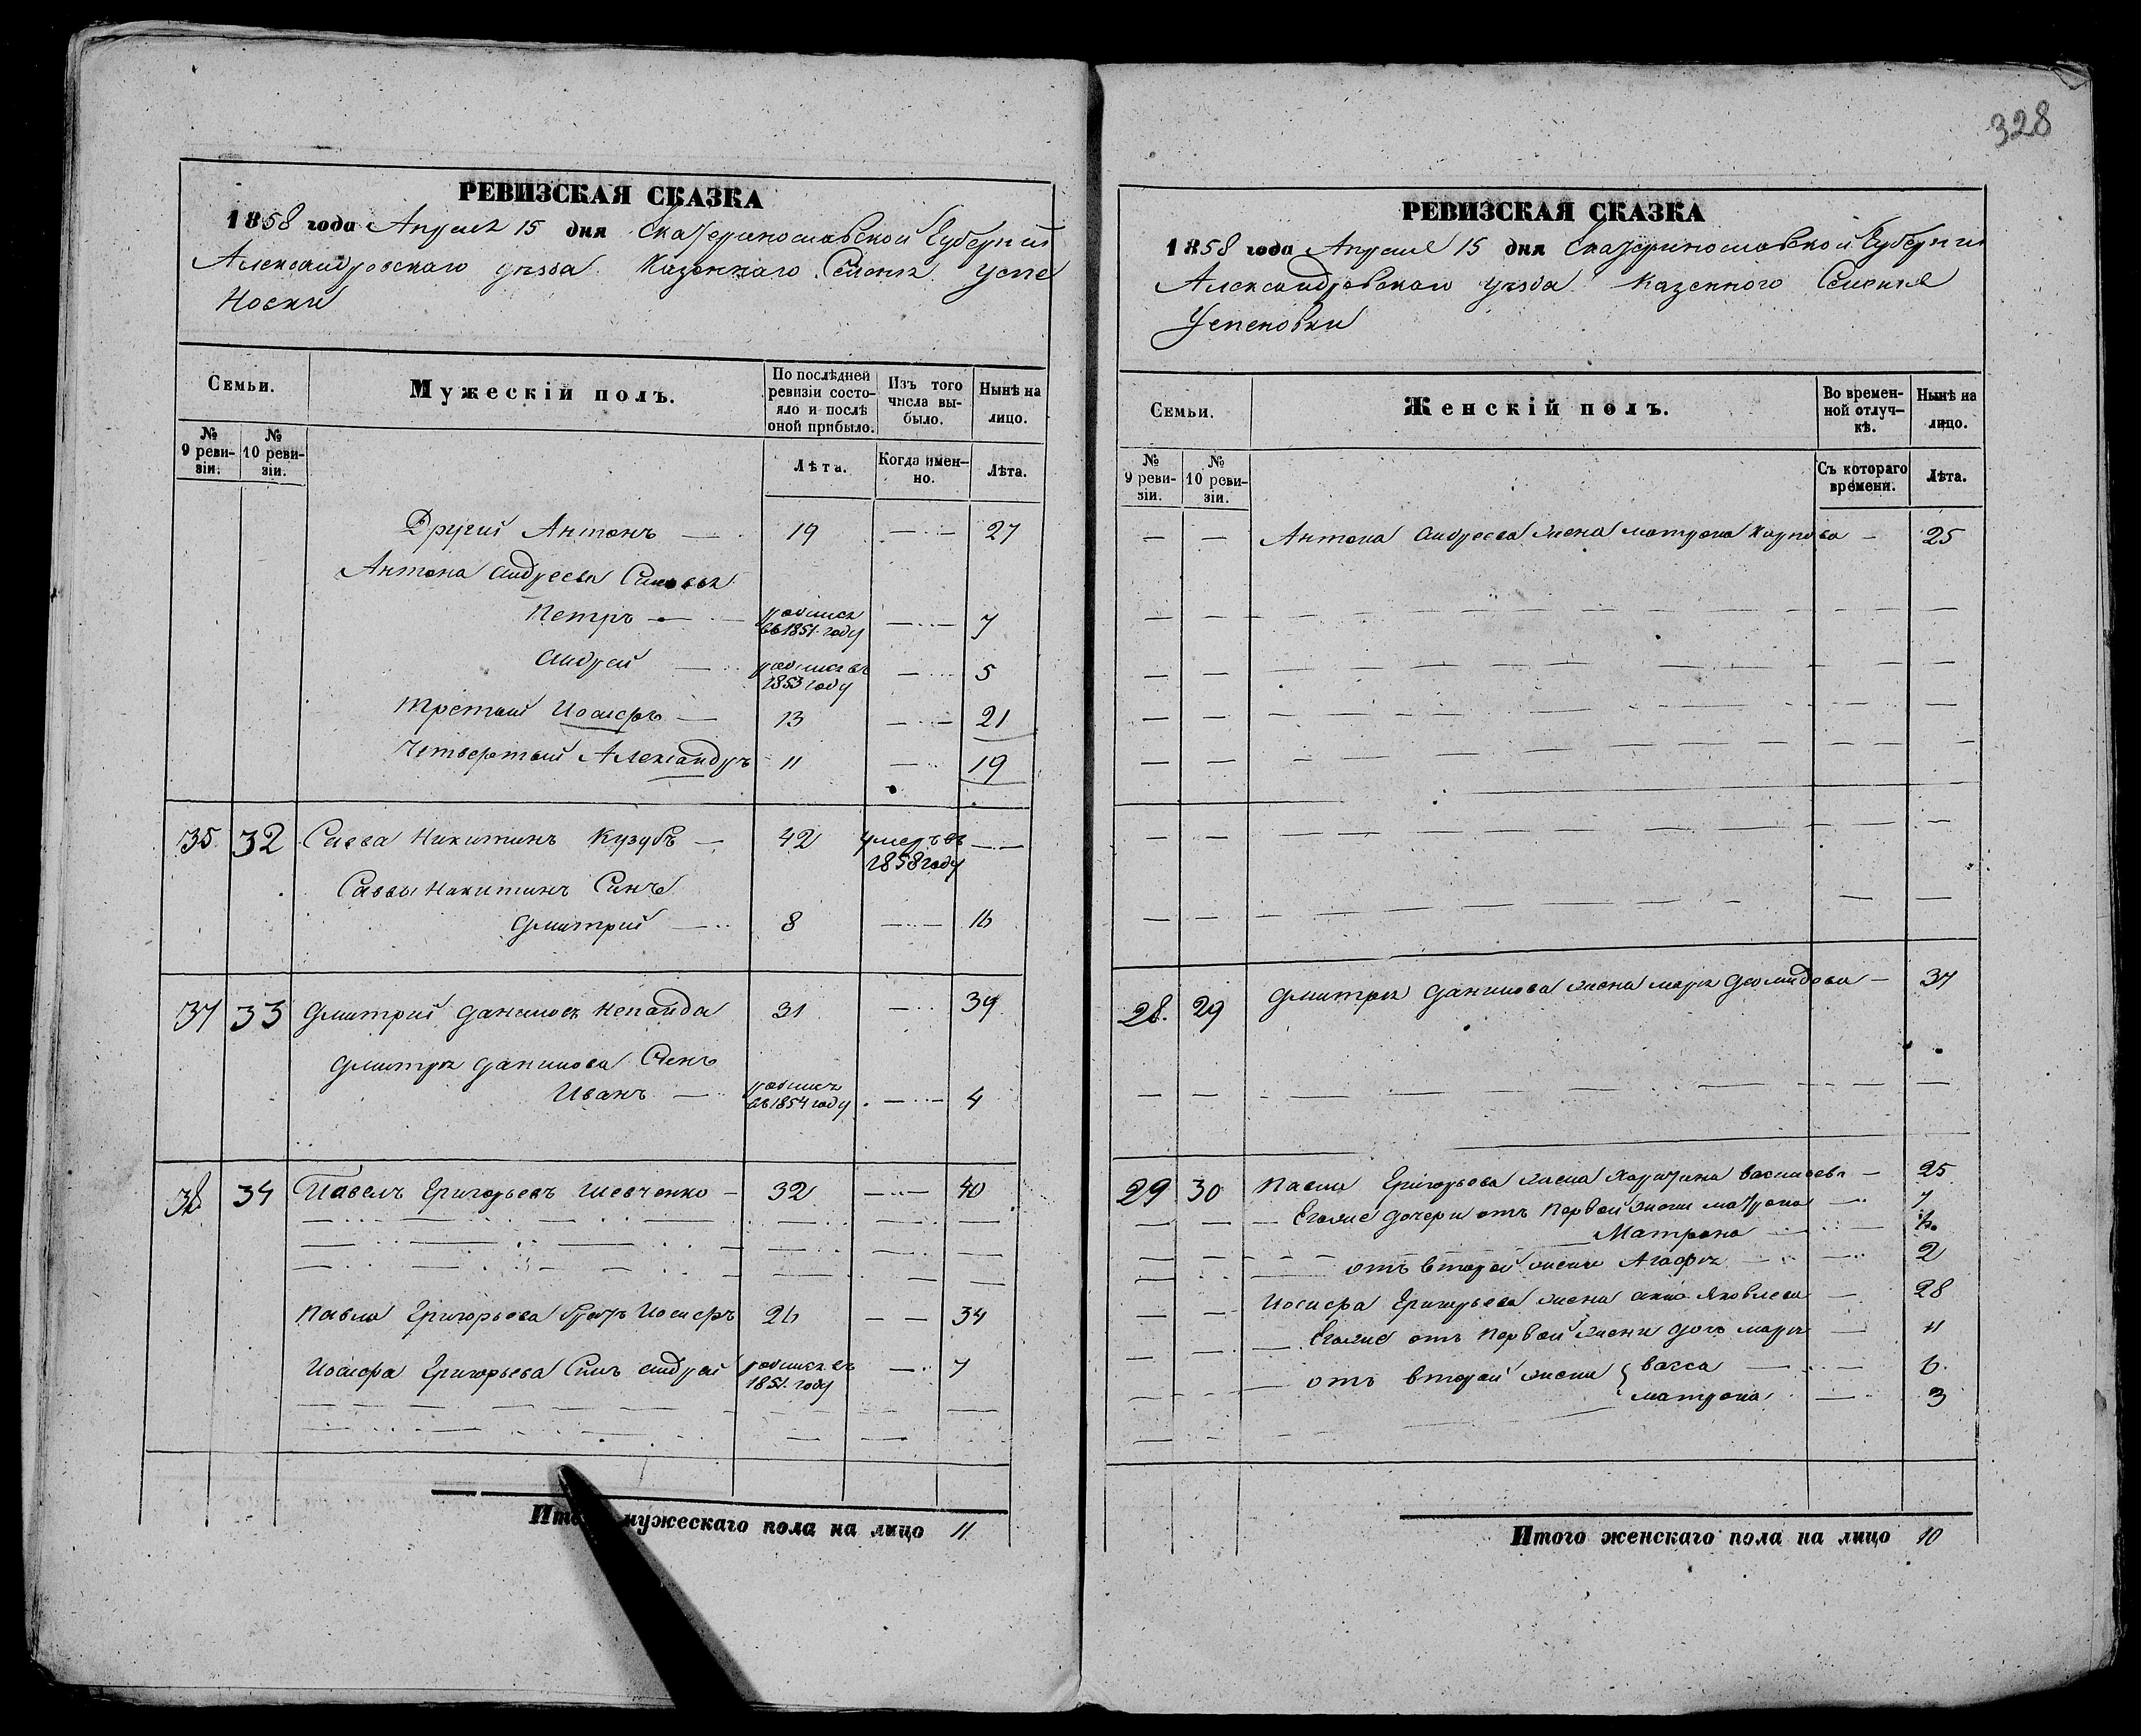 328
РЕВИЗСКАЯ СКАЗКА
1858 года Апреля 15 дня Екатеринославской Губернии
Александровскаго уезда Казеннаго Селенія Успе
новки
Семьи.
Мужескій полъ.
По послѣдней ревизіи состояло и послѣ оной прибыло.
Изъ того числа выбыло.
Нынѣ на лицо.
№ 9 ревизіи.
№ 10 ревизіи.
Лѣта.
Когда именно.
Лѣта.
Другий Антонъ — 19 — 27
Антона Андреева Сыновья
Петръ — родился въ 1851 году — 7
Андрей — родился въ 1853 году — 5
Третый Иосифъ — 13 — 21
Четвертый Александръ 11 — 19
35 32 Савва Никитинъ Кузубъ — 42 умеръ въ 1858 году —
Саввы Никитинъ Синъ
Дмитрий — 8 — 16
37 33 Дмитрий Даниловъ Непайда 31 — 39
Дмитрія Данилова Сынъ
Иванъ — родился въ 1854 году — 4
38 34 Павелъ Григорьевъ Шевченко — 32 — 40
Павла Григорьева братъ Иосифъ 26 — 34
Иосифа Григорьева Синъ Андрей родился въ 1851 году — 7
Итого мужескаго пола на лицо 11
РЕВИЗСКАЯ СКАЗКА
1858 года Апреля 15 дня Екатеринославской Губернии
Александровскаго уезда Казенного Селенія
Успеновки
Семьи.
Женскій полъ.
Во временной отлучкѣ.
Нынѣ на лицо.
№ 9 ревизіи.
№ 10 ревизіи.
Съ котораго времени.
Лѣта.
— — Антона Андреева жена Матрона Карпова — 25
28. 29 Дмитрія Данилова жена Марія Демидова — 37
29 30 Павла Григорьева жена Харитина Васильева — 25
Егоже дочери отъ первой жены Матрона — 7
Матрона
отъ второй жены Агафія — 2
Иосифа Григорьева жена Анна Яковлева — 28
Егоже отъ первой жены дочь Марія — 11
отъ второй жены { Васса — 6
Матрона — 3
Итого женскаго пола на лицо 10